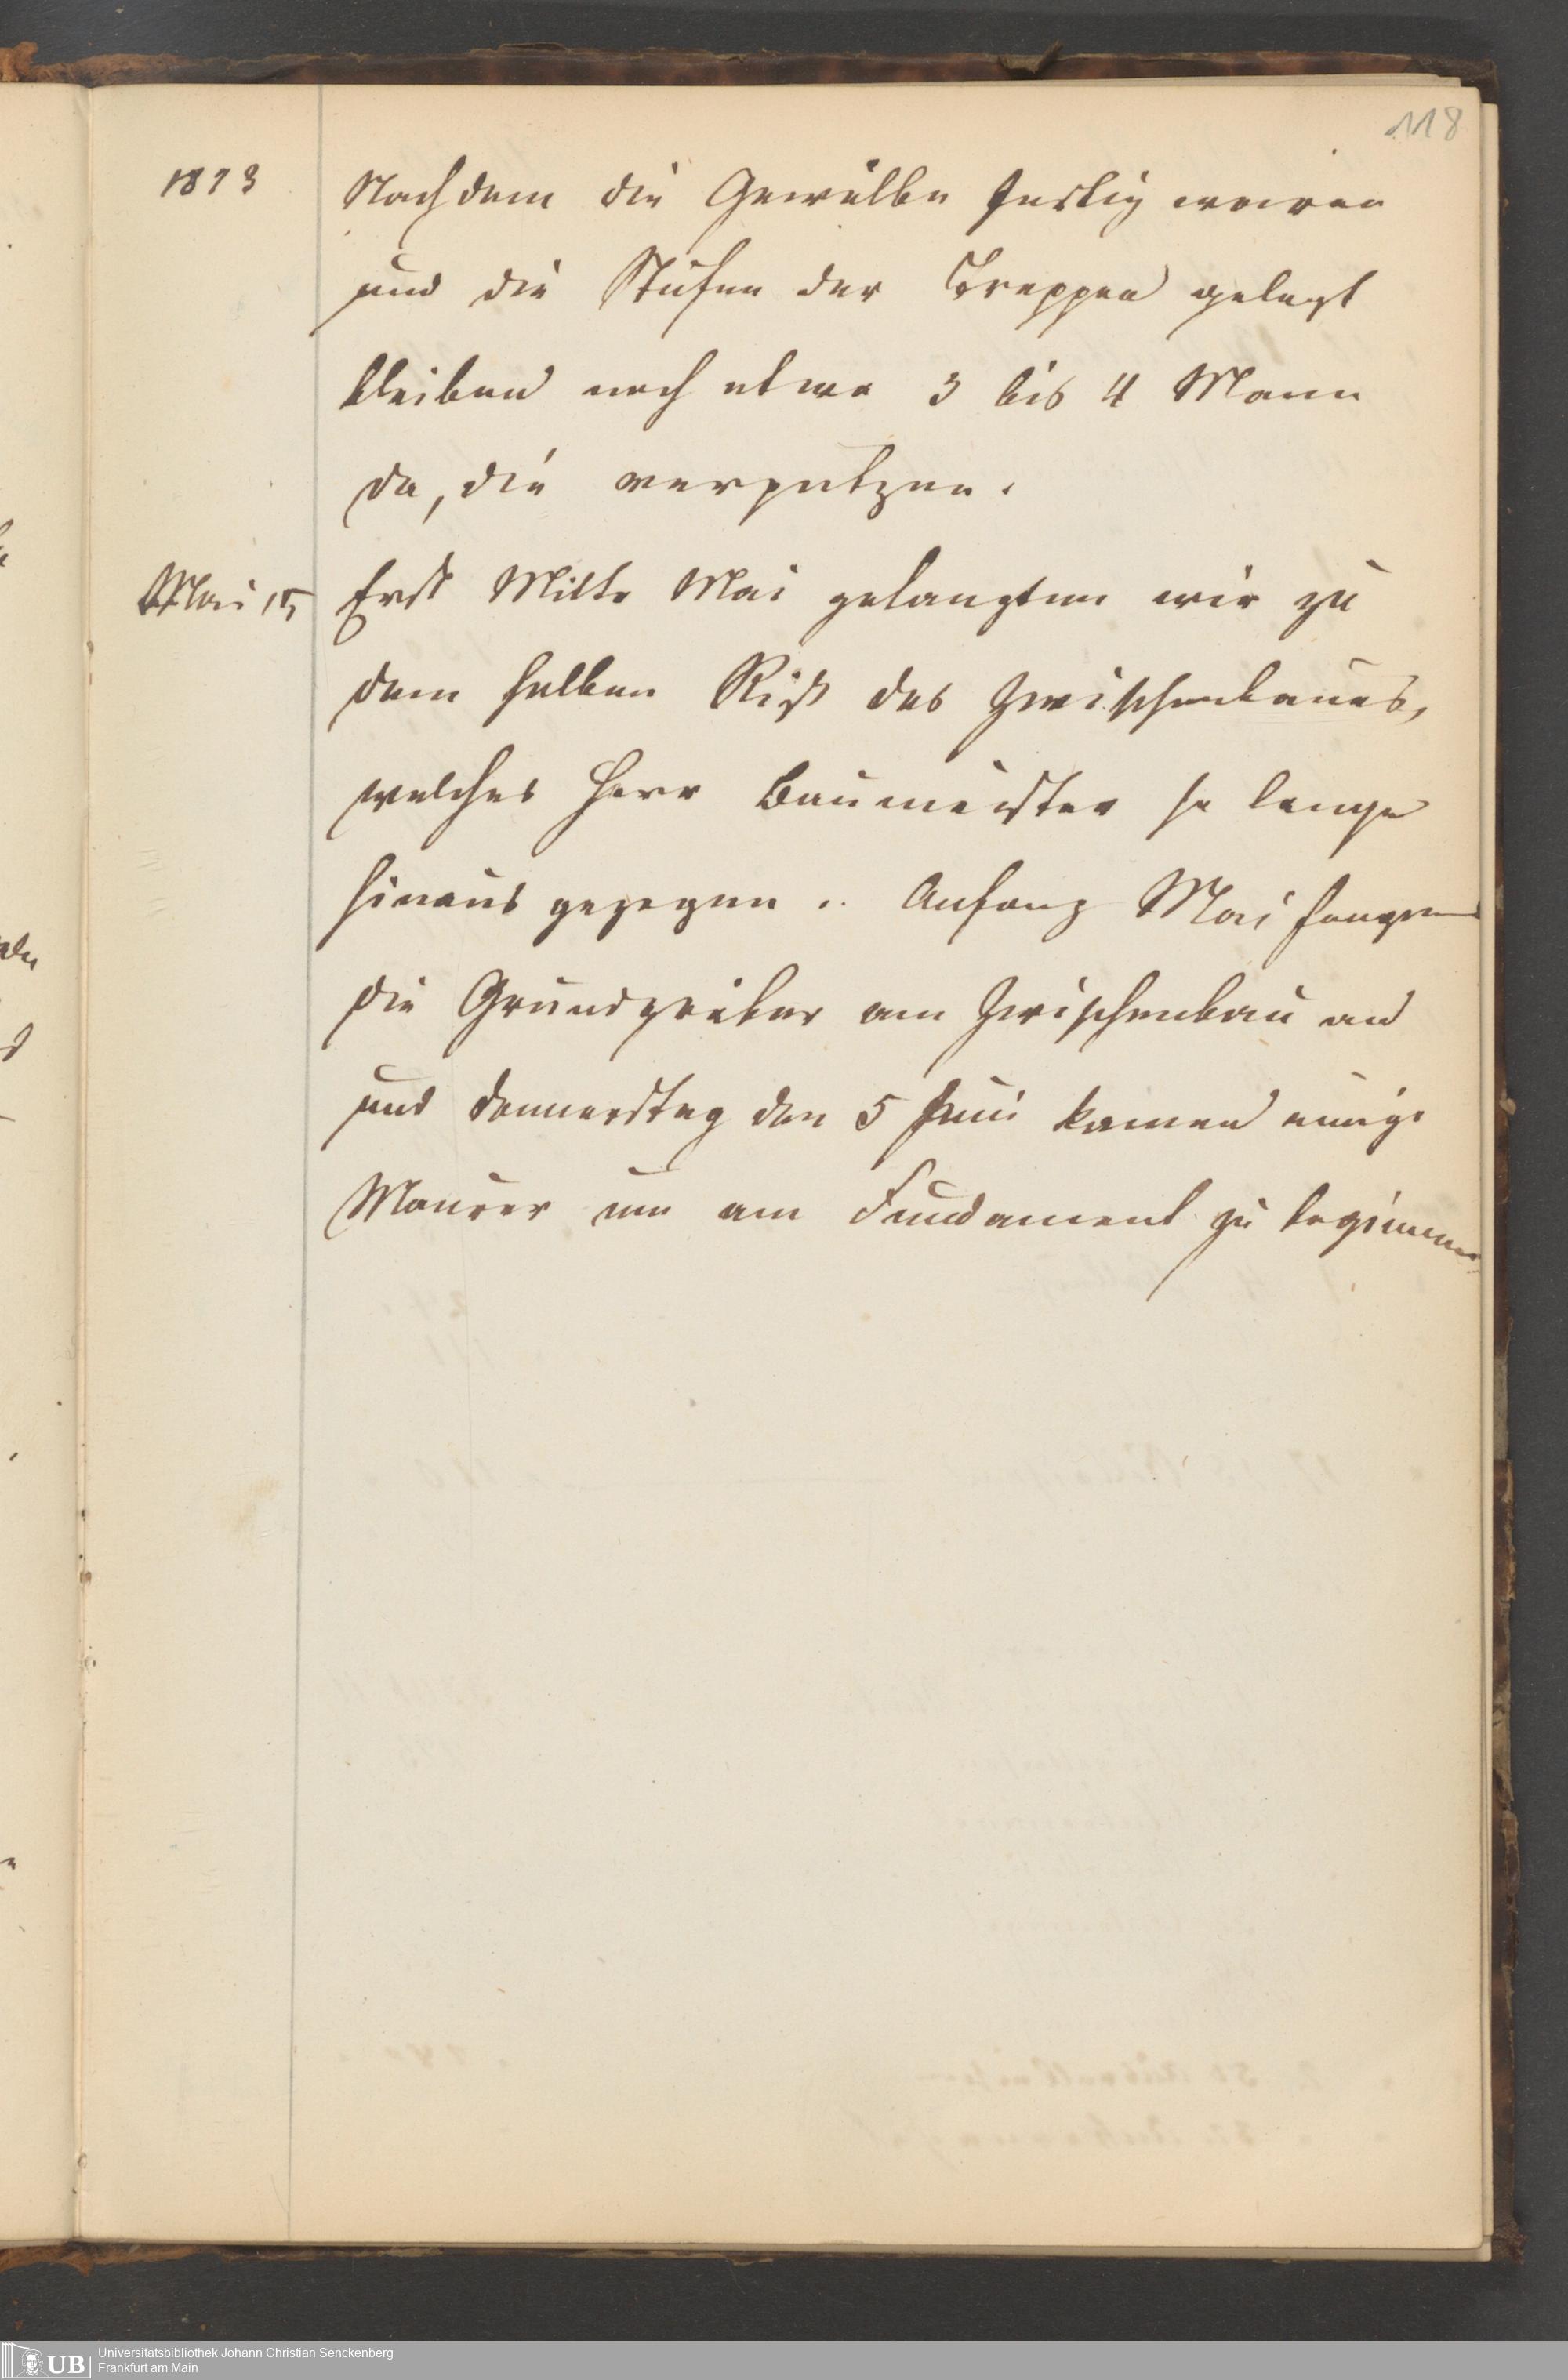 118
1873
Nachdem die Gewölbe fertig waren
und die Stufen der Treppen gelegt
bleiben noch etwa 3 bis 4 Mann
da, die verputzen.
Mai 15
Erst Mitte Mai gelangten wir zu
dem halben Riß des Zwischenbaues,
welches Herr Baumeister so lange
hinaus gezogen. Anfang Mai fangen
die Grundgräber am Zwischenbau an
und Donnerstag den 5 Juni kamen einige
Maurer um am Fundament zu beginnen.
UB
Universitätsbibliothek Johann Christian Senckenberg
Frankfurt am Main